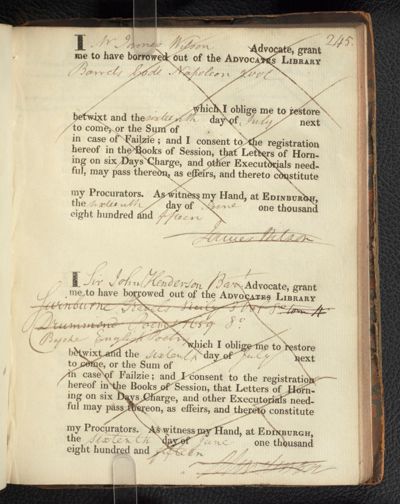 245.
I Mr James Wilson Advocate, grant
me to have borrowed out of the ADVOCATES LIBRARY
Barrets Code Napoleon
which I oblige me to restore
betwixt and the sixteenth day of July next
to come, or the Sum of
in case of Failzie; and I consent to the registration
hereof in the Books of Session, that Letters of Horn-
ing on six Days Charge, and other Executorials need-
ful, may pass thereon, as effeirs, and thereto constitute
my Procurators. As witness my Hand, at EDINBURGH,
the sixteenth day of June one thousand
eight hundred and fifteen
James Wilson
I Sir John Henderson Bart Advocate, grant
me to have borrowed out of the ADVOCATES LIBRARY
Swinburne Travels Sicily
Drummond
Bysshe English Poetry
which I oblige me to restore
betwixt and the sixteenth day of July next
to come, or the Sum of
in case of Failzie; and I consent to the registration
hereof in the Books of Session, that Letters of Horn-
ing on six Days Charge, and other Executorials need-
ful may pass thereon, as effeirs, and thereto constitute
my Procurators. As witness my Hand, at EDINBURGH,
the sixtenth day of June one thousand
eight hundred and fifteen